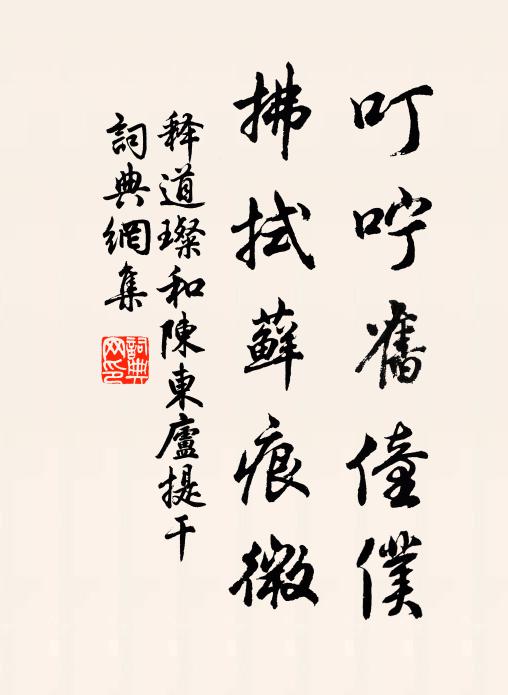 叮咛舊僮僕
拂拭蘚痕微
释道璨和陳東廬提干
詞典網集
詞典网印